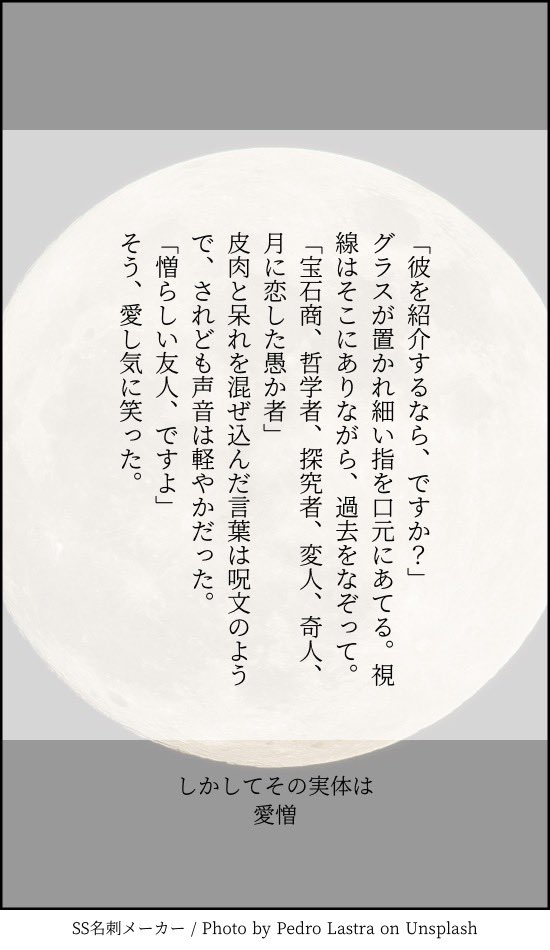 「彼を紹介するなら、ですか？」
グラスが置かれ細い指を口元にあてる。視
線はそこにありながら、過去をなぞって。
「宝石商、哲学者、探究者、変人、奇人、
月に恋した愚か者」
皮肉と呆れを混ぜ込んだ言葉は呪文のよう
で、されども声音は軽やかだった。
「憎らしい友人、ですよ」
そう、愛し気に笑った。
しかしてその実体は
愛憎
SS名刺メーカー / Photo by Pedro Lastra on Unsplash